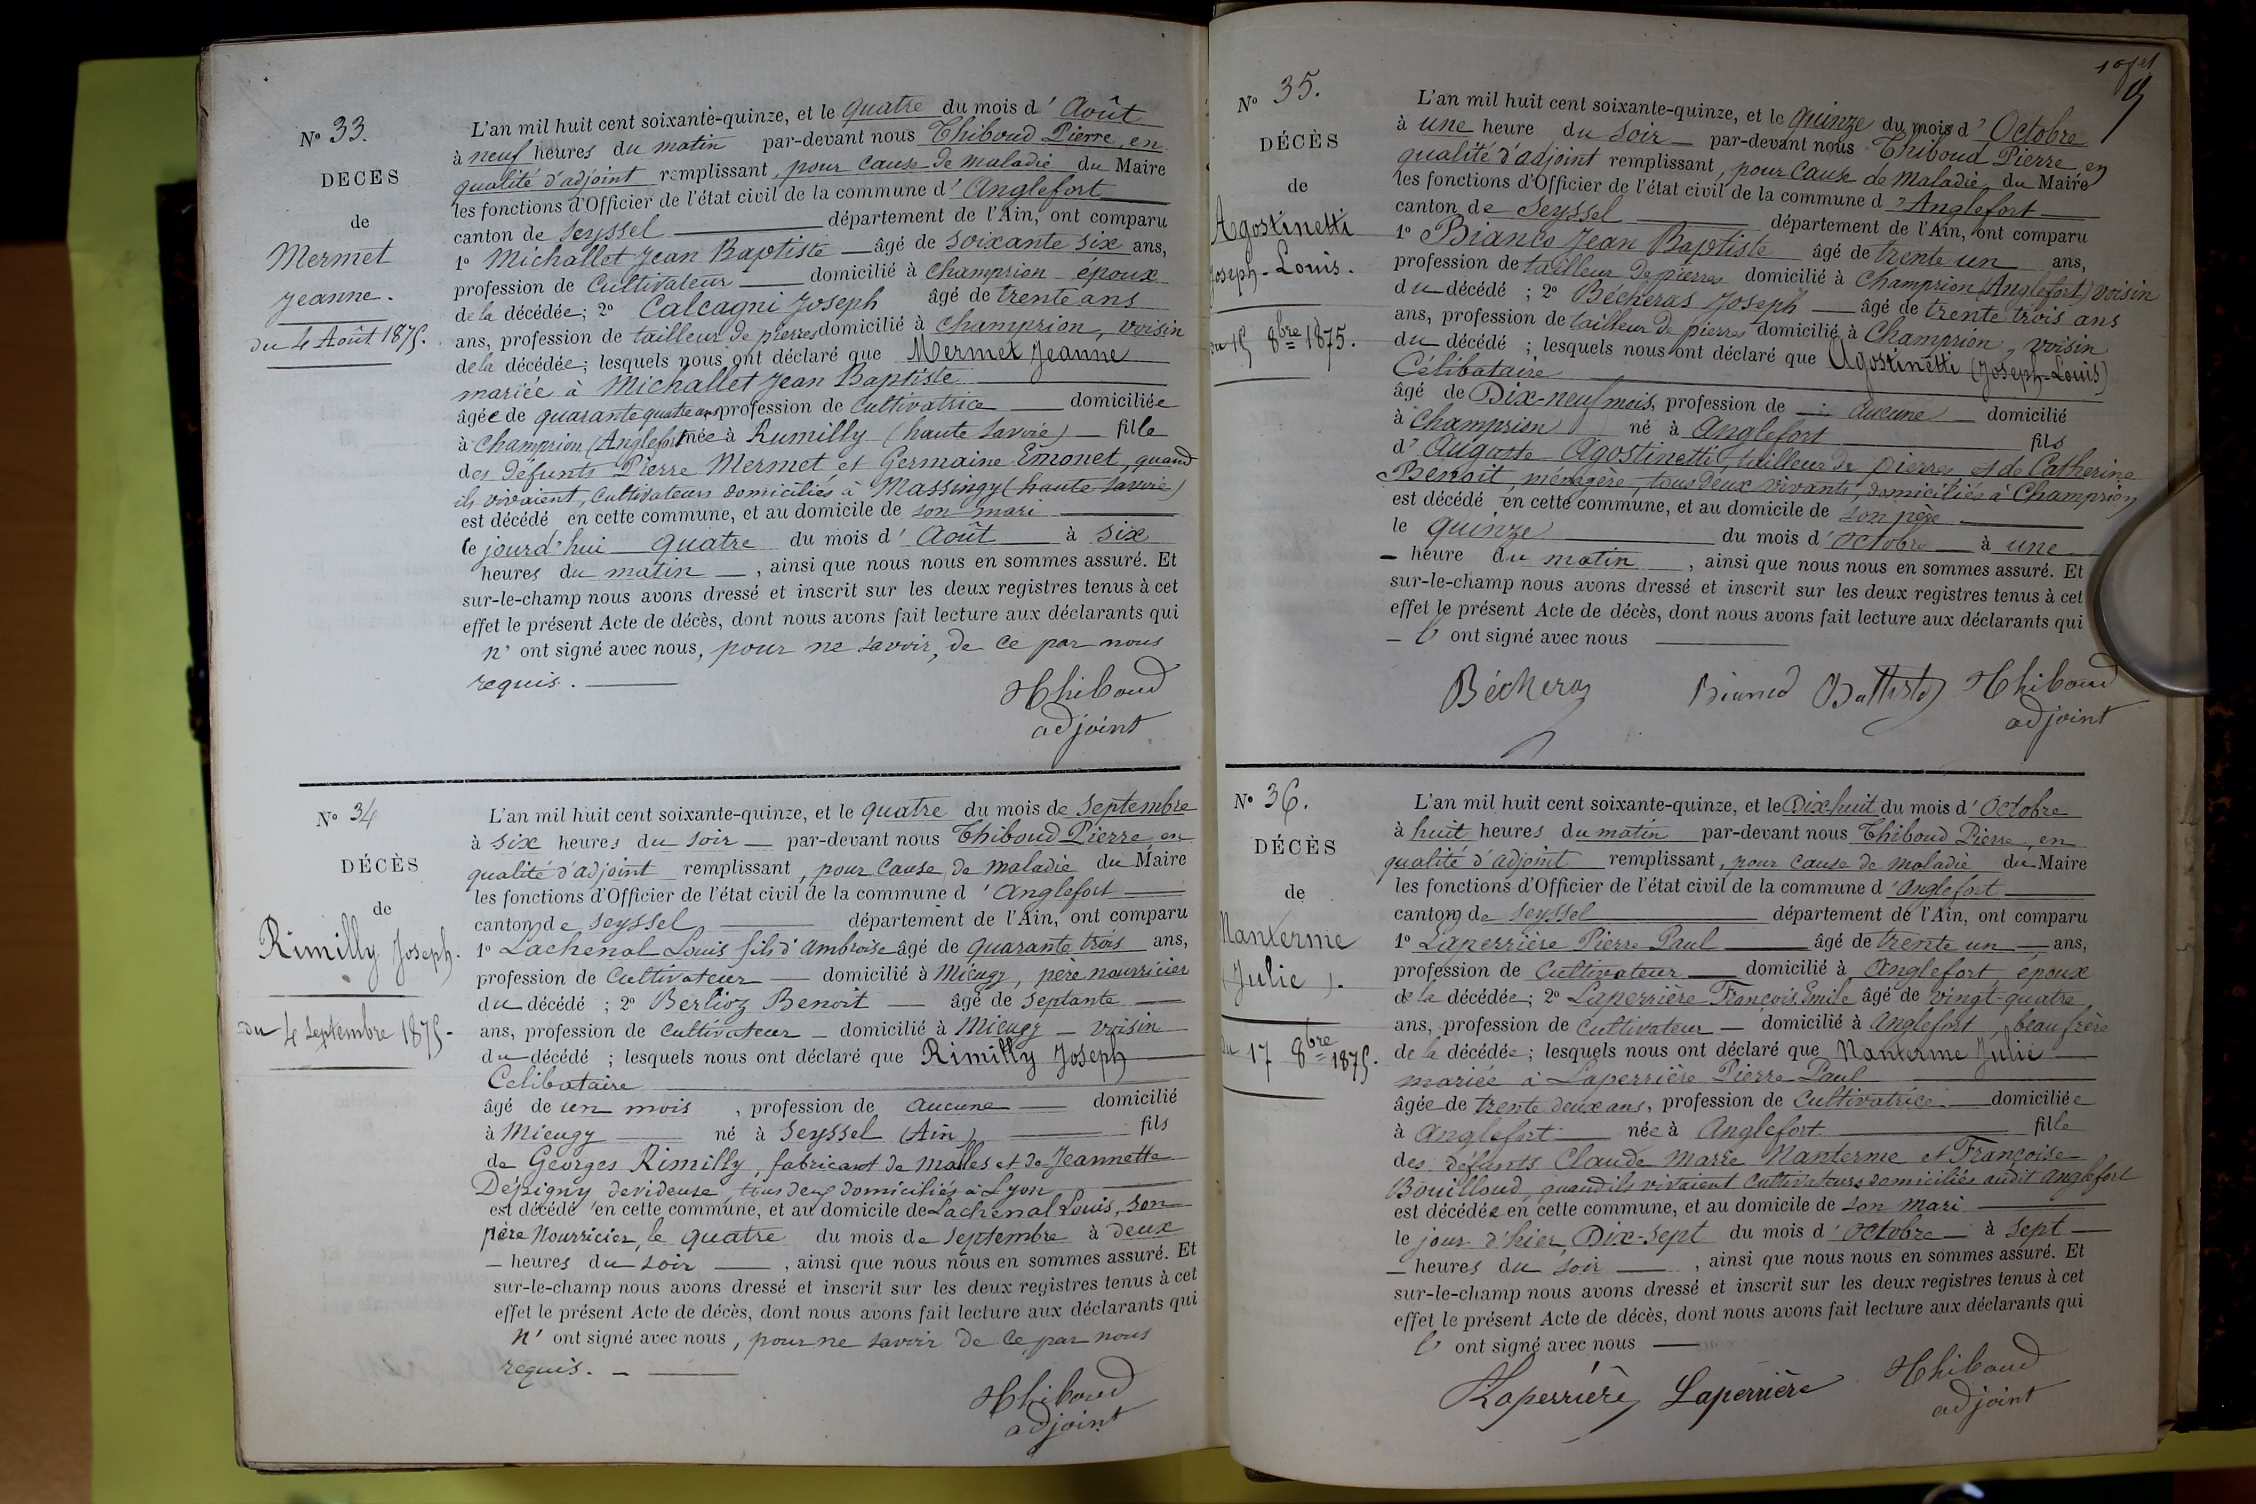 N° 33.
DÉCÈS
de
Mermet
Jeanne.
du 4 Août 1875.
L'an mil huit cent soixante-quinze, et le quatre du mois d' Août
à neuf heures du matin par-devant nous Thiboud Pierre, en
qualité d'adjoint remplissant, pour cause de maladie du Maire
les fonctions d'Officier de l'état civil de la commune d' Anglefort
canton de Seyssel département de l'Ain, ont comparu
1° Michallet Jean Baptiste âgé de soixante six ans,
profession de Cultivateur domicilié à Champrion époux
de la décédée; 2° Calcagni Joseph âgé de trente ans
ans, profession de tailleur de pierres domicilié à Champrion, voisin
de la décédée; lesquels nous ont déclaré que Mermet Jeanne
mariée à Michallet Jean Baptiste
âgée de quarante quatre ans profession de Cultivatrice domiciliée
à Champrion (Anglefort) née à Rumilly (haute Savoie) fille
des défunts Pierre Mermet et Germaine Emonet, quand
ils vivaient, cultivateurs domiciliés à Massingy (haute Savoie)
est décédé en cette commune, et au domicile de son mari
le jourd'hui quatre du mois d' Août à six
heures du matin, ainsi que nous nous en sommes assuré. Et
sur-le-champ nous avons dressé et inscrit sur les deux registres tenus à cet
effet le présent Acte de décès, dont nous avons fait lecture aux déclarants qui
n' ont signé avec nous, pour ne savoir, de ce par nous
requis.
Thiboud
adjoint
N° 34
DÉCÈS
de
Rimilly Joseph.
du 4 Septembre 1875.
L'an mil huit cent soixante-quinze, et le quatre du mois de Septembre
à six heures du soir par-devant nous Thiboud Pierre, en
qualité d'adjoint remplissant, pour cause de maladie du Maire
les fonctions d'Officier de l'état civil de la commune d 'Anglefort
canton de Seyssel département de l'Ain, ont comparu
1° Lachenal Louis fils d'Ambroise âgé de quarante trois ans,
profession de Cultivateur domicilié à Mieugy, père nourricier
du décédé ; 2° Berlioz Benoit âgé de septante
ans, profession de cultivateur domicilié à Mieugy voisin
du décédé ; lesquels nous ont déclaré que Rimilly Joseph
Célibataire
âgé de un mois, profession de aucune domicilié
à Mieugy né à Seyssel (Ain) fils
de Georges Rimilly, fabricant de malles et de Jeannette
Dépigny, devideuse, tous deux domiciliés à Lyon
est décédé en cette commune, et au domicile de Lachenal Louis, son
père Nourricier, le quatre du mois de Septembre à deux
heures du soir, ainsi que nous nous en sommes assuré. Et
sur-le-champ nous avons dressé et inscrit sur les deux registres tenus à cet
effet le présent Acte de décès, dont nous avons fait lecture aux déclarants qui
n' ont signé avec nous, pour ne savoir de ce par nous
requis.
Thiboud
adjoint
N° 35.
DÉCÈS
de
Agostinetti
Joseph-Louis.
du 15 8bre 1875.
L'an mil huit cent soixante-quinze, et le quinze du mois d' Octobre
à une heure du soir par-devant nous Thiboud Pierre en
qualité d'adjoint remplissant, pour cause de maladie du Maire
les fonctions d'Officier de l'état civil de la commune d 'Anglefort
canton de Seyssel département de l'Ain, ont comparu
1° Bianco Jean Baptiste âgé de trente un ans,
profession de tailleur de pierres domicilié à Champrion (Anglefort) voisin
du décédé ; 2° Bécheras Joseph âgé de trente trois ans
ans, profession de tailleur de pierres domicilié à Champrion, voisin
du décédé ; lesquels nous ont déclaré que Agostinetti (Joseph-Louis)
Célibataire
âgé de Dix-neuf mois, profession de aucune domicilié
à Champrion né à Anglefort fils
d' Auguste Agostinetti, tailleur de pierres et de Catherine
Benoit, ménagère, tous deux vivants, domiciliés à Champrion
est décédé en cette commune, et au domicile de son père
le quinze du mois d' octobre à une
heure du matin, ainsi que nous nous en sommes assuré. Et
sur-le-champ nous avons dressé et inscrit sur les deux registres tenus à cet
effet le présent Acte de décès, dont nous avons fait lecture aux déclarants qui
ont signé avec nous
Bécheras Battista Thiboud
adjoint
N° 36.
DÉCÈS
de
Nanterme
(Julie).
du 17 8bre 1875.
L'an mil huit cent soixante-quinze, et le Dix-huit du mois d' Octobre
à huit heures du matin par-devant nous Thiboud Pierre, en
qualité d'adjoint remplissant, pour cause de maladie du Maire
les fonctions d'Officier de l'état civil de la commune d 'Anglefort
canton de Seyssel département de l'Ain, ont comparu
1° Laperrière Pierre Paul âgé de trente un ans,
profession de Cultivateur domicilié à Anglefort, époux
de la décédée; 2° Laperrière François Emile âgé de vingt-quatre,
ans, profession de Cultivateur domicilié à Anglefort, beau frère
de la décédée; lesquels nous ont déclaré que Nanterme Julie
mariée à Laperrière Pierre Paul
âgée de trente deux ans, profession de Cultivatrice domiciliée
à Anglefort née à Anglefort fille
des défunts Claude Marie Nanterme et Françoise
Bouilloud, quand ils vivaient Cultivateurs domiciliés audit Anglefort
est décédée en cette commune, et au domicile de son mari
le jour d'hier, Dix-sept du mois d' octobre à sept
heures du soir, ainsi que nous nous en sommes assuré. Et
sur-le-champ nous avons dressé et inscrit sur les deux registres tenus à cet
effet le présent Acte de décès, dont nous avons fait lecture aux déclarants qui
ont signé avec nous
Laperrière Laperrière Thiboud
adjoint